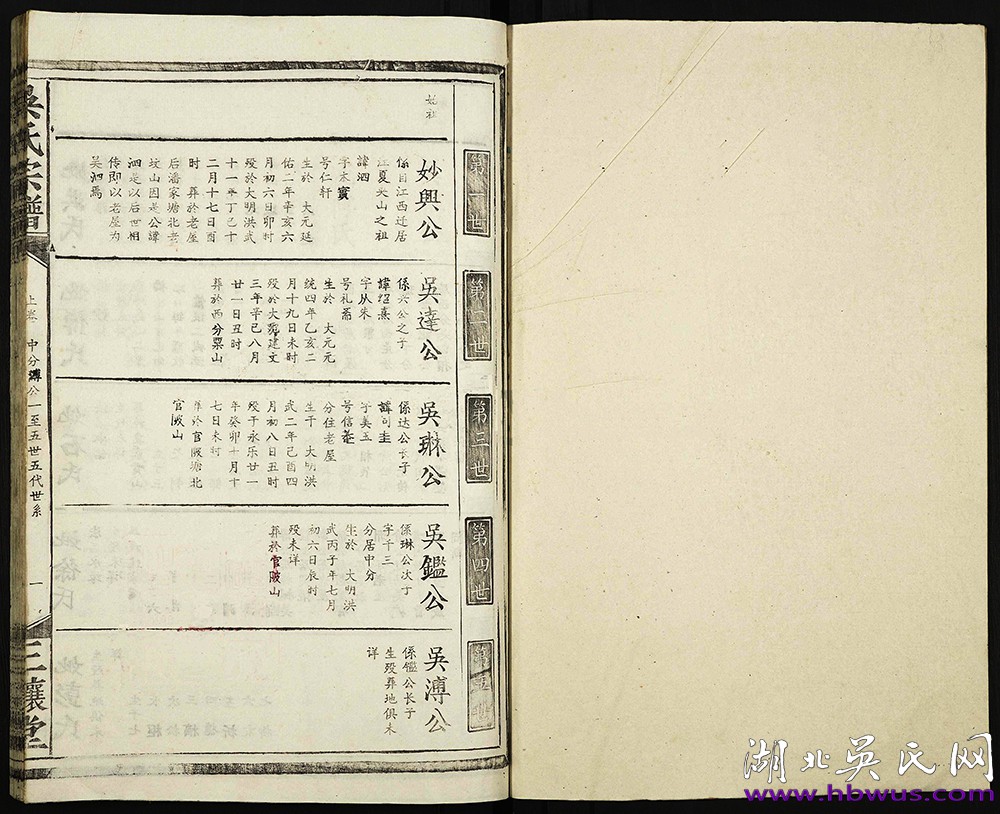 始祖
第一世
妙興公
係自江西迁居
江夏尖山之祖
諱泗
字本實
号仁轩
生於 大元延
佑二年辛亥六
月初六日卯时
殁於大明洪武
十一年丁巳十
二月十七日酉
时 葬於老屋
后潘家塘北老
坟山因是公諱
泗是以后世相
传即以老屋为
吴泗焉
第二世
吳達公
係兴公之子
諱绍熹
字从朱
号礼菴
生於 大元元
统四年乙亥二
月十九日未时
殁於大明建文
三年辛巳八月
廿一日丑时
葬於西分粟山
第三世
吳琳公
係达公长子
諱可圭
字美玉
号信菴
分住老屋
生于 大明洪
武二年己酉四
月初八日丑时
殁于永乐廿一
年癸卯十月十
七日未时
葬於官陂塘北
官陂山
第四世
吳鑑公
係琳公次子
字千三
分居中分
生於 大明洪
武丙子年七月
初六日辰时
殁未详
葬於官陂山
第五世
吳溥公
係鑑公长子
生殁葬地俱未
详
吳氏宗譜
上卷 中分溥公一至五世五代世系
一
三讓堂
湖北吴氏网
www.hbwus.com